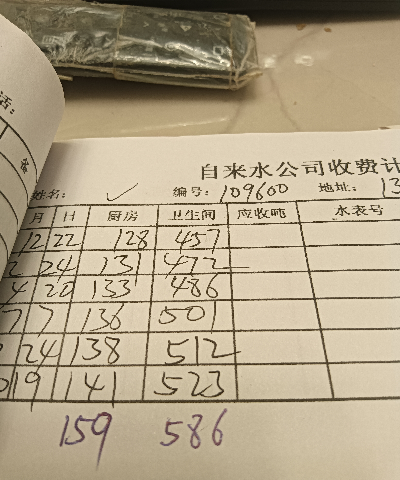 活:
自来水公司收费计
姓名: ✓ 编号: 109600 地址: 13
月 日 厨房 卫生间 应收吨 水表号
12 22 128 457
2 24 131 472
4 20 133 486
7 7 136 501
24 138 512
19 141 523
159 586